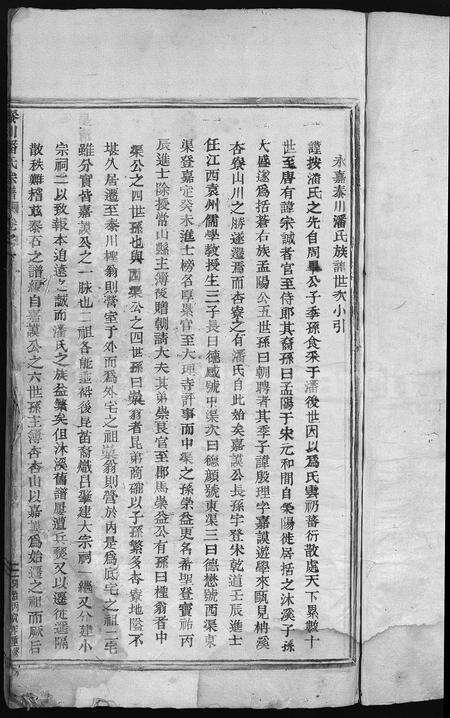 永嘉泰川潘氏族譜世次小引
謹按潘氏之先自周畢公子季孫食采于潘後世因以爲氏雲礽蕃衍散處天下累數十
世至唐有諱宗誠者官至侍郎其裔孫曰孟陽于宋元和間自榮陽徙居括之沐溪子孫
大盛遂爲括蒼右族孟陽公五世孫曰朝聘者其季子諱殷理字嘉謨遊學來甌見柟溪
杏寮山川之勝遂遷焉而杏寮之有潘氏自此始矣嘉謨公長孫宇登宋乾道壬辰進士
任江西袁州儒學教授生三子長曰德威號中渠次曰德顔號東渠三曰德懋號西渠東
渠登嘉定癸未進士榜名厚累官至大理寺評事而中渠之孫榮益更名希聖登寶祐丙
辰進士除授當山縣主簿後贈朝請大夫其弟崇艮官至郡馬榮益公有孫曰橦翁者中
渠公之四世孫也與西渠公之四世孫曰翁者昆弟商確以子孫繁多杏寮地隘不
堪久居遷至泰川橦翁則營室于外而爲外宅之祖翁則營於內是爲底宅之祖二宅
雖分實皆嘉謨公之一脉也二祖各能垂裕後昆苗裔熾昌肇建大宗祠一繼又分建小
宗祠二以致報本追遠之誠而潘氏之族益繁矣但沐溪舊譜屢遭兵燹又以遷徙遥隔
散秩難稽兹泰石之譜始自嘉謨公之六世孫主簿杏山以嘉謨爲始遷之祖而厥后